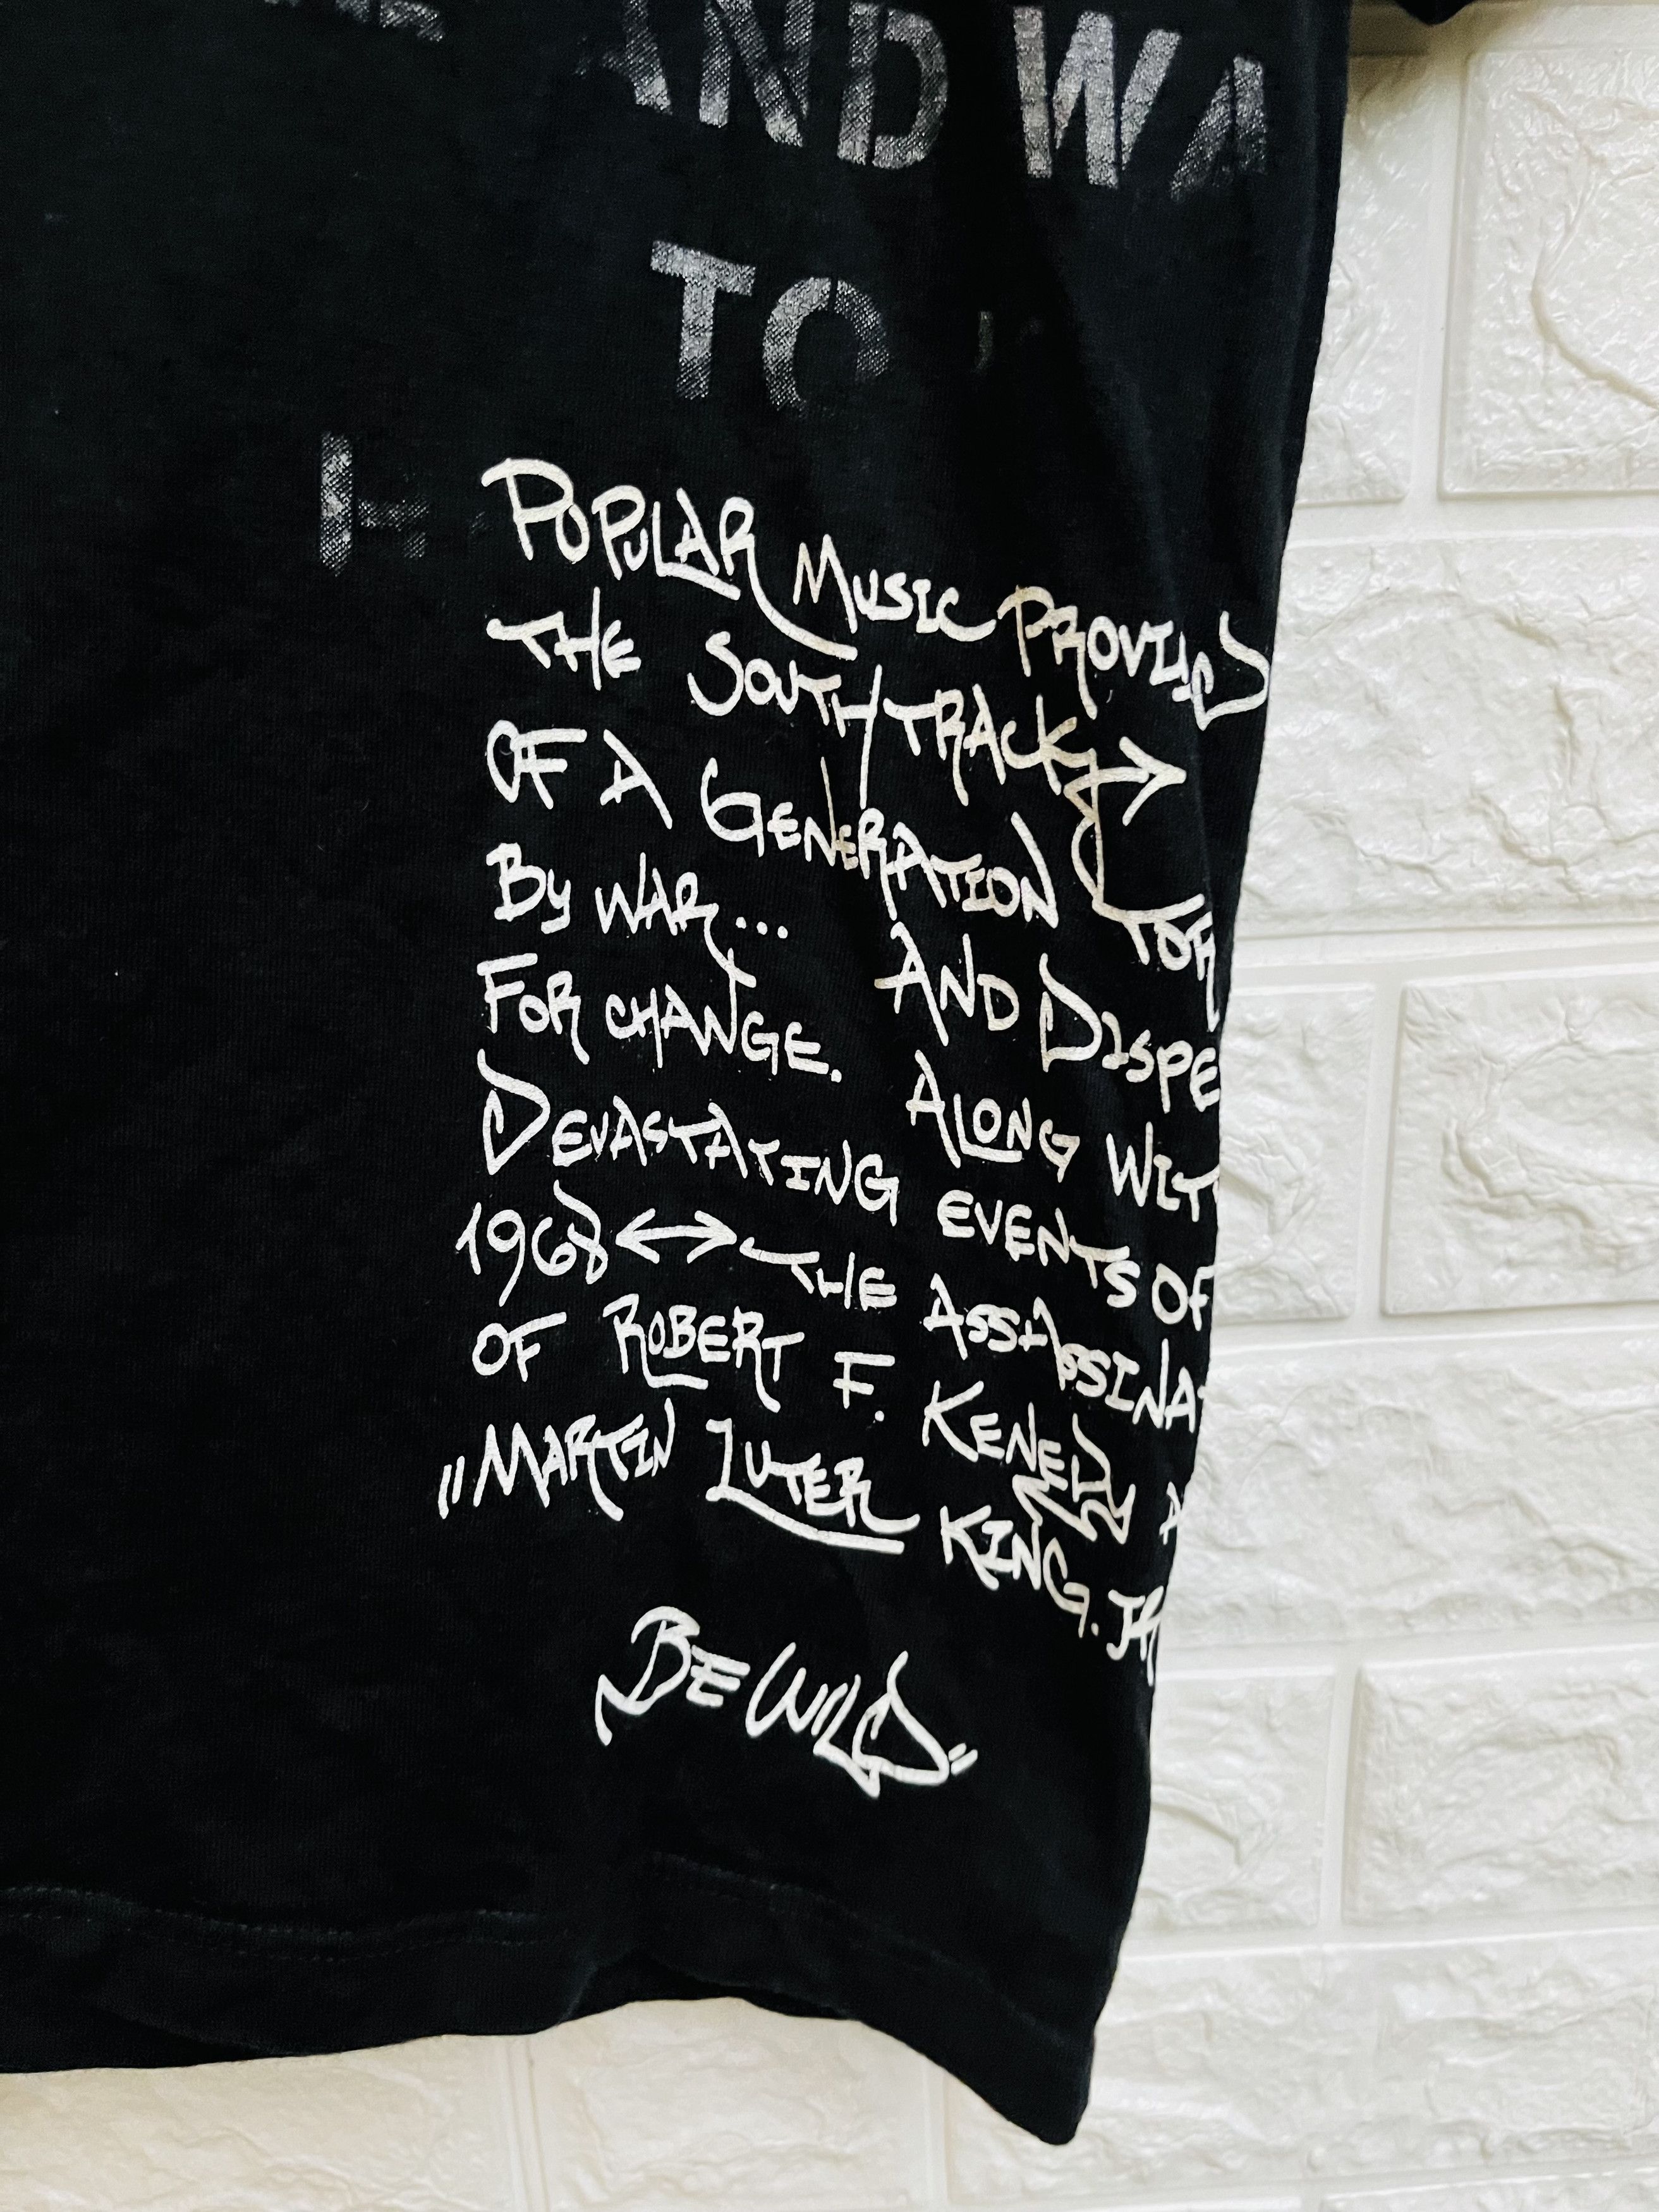 AND WA
TO
H
POPULAR MUSIC PROVIDED
THE SOUTHTRACK →
OF A GENERATION TOR
BY WAR... AND DISPE
FOR CHANGE. ALONG WIT
DEVASTATING EVENTS OF
1968 ↔ THE ASSASSINAT
OF ROBERT F. KENEDY A
"MARTIN LUTER KING. JR
BE WILD"